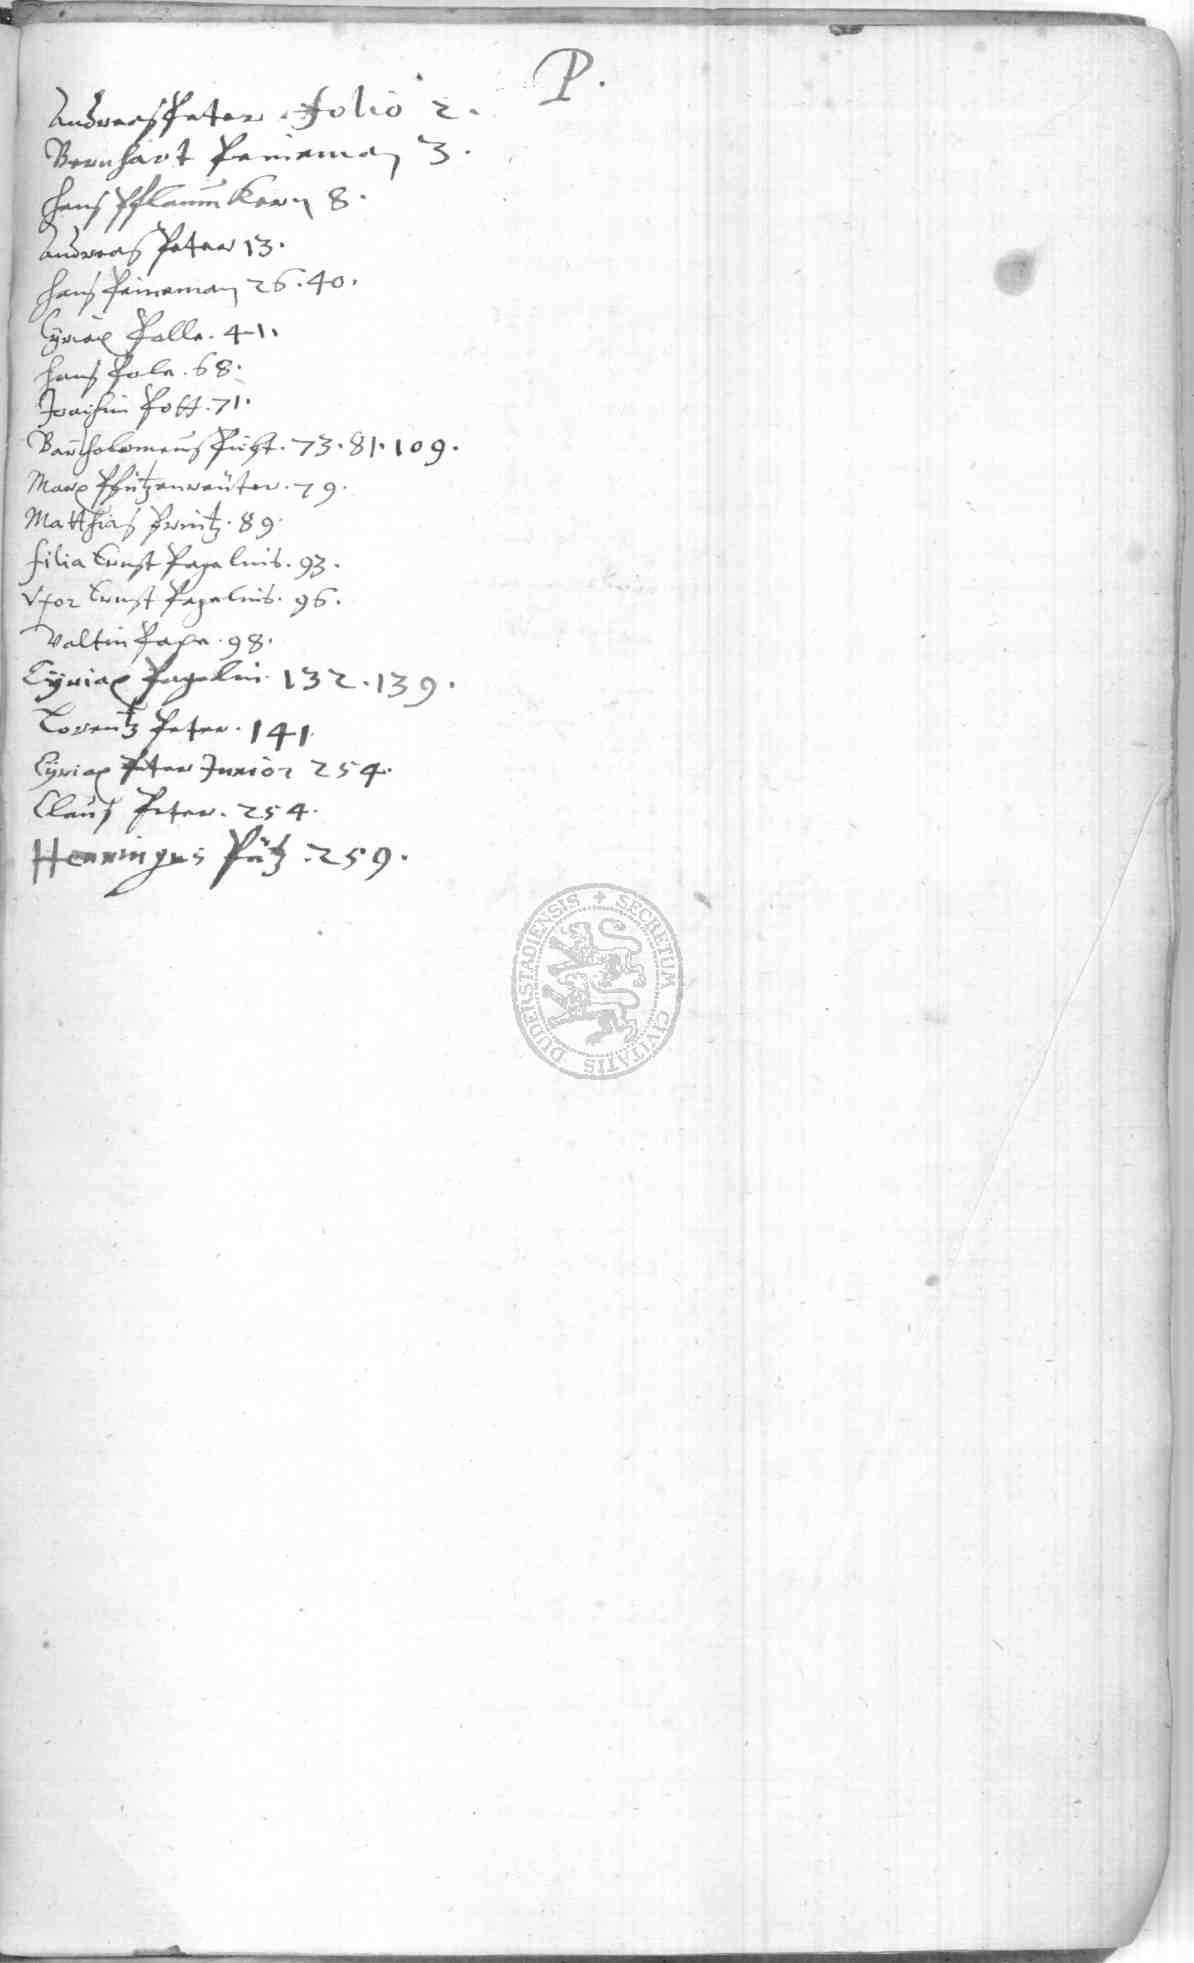 P.
Andreas Peter Folio 2.
Bernhart Peineman 3.
Hans Pflaumkern 8.
Andreas Peter 13.
Hans Peineman 26. 40.
Cyriax Polle. 41.
Hans Pole. 68.
Joachim Pott. 71.
Bartholomeus 73. 81. 109.
Marx Pfützenreüter. 79.
Matthias Printz. 89.
filia Ernst Pagelnis. 93.
Vxor Ernst Pagelnis. 96.
Valtin Pape. 98.
Cÿriax Pagelin. 132. 139.
Lorentz Peter. 141.
Cÿriax Peter Junior 254.
Clauß Peter. 254.
Henningus Pätz. 259.
SECRETUM CIVITATIS DUDERSTADIENSIS